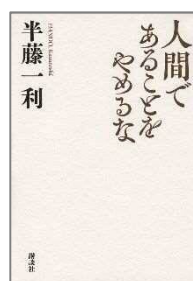 人間で
あることを
やめるな
半藤一利
HANDO, Kazutoshi
講談社